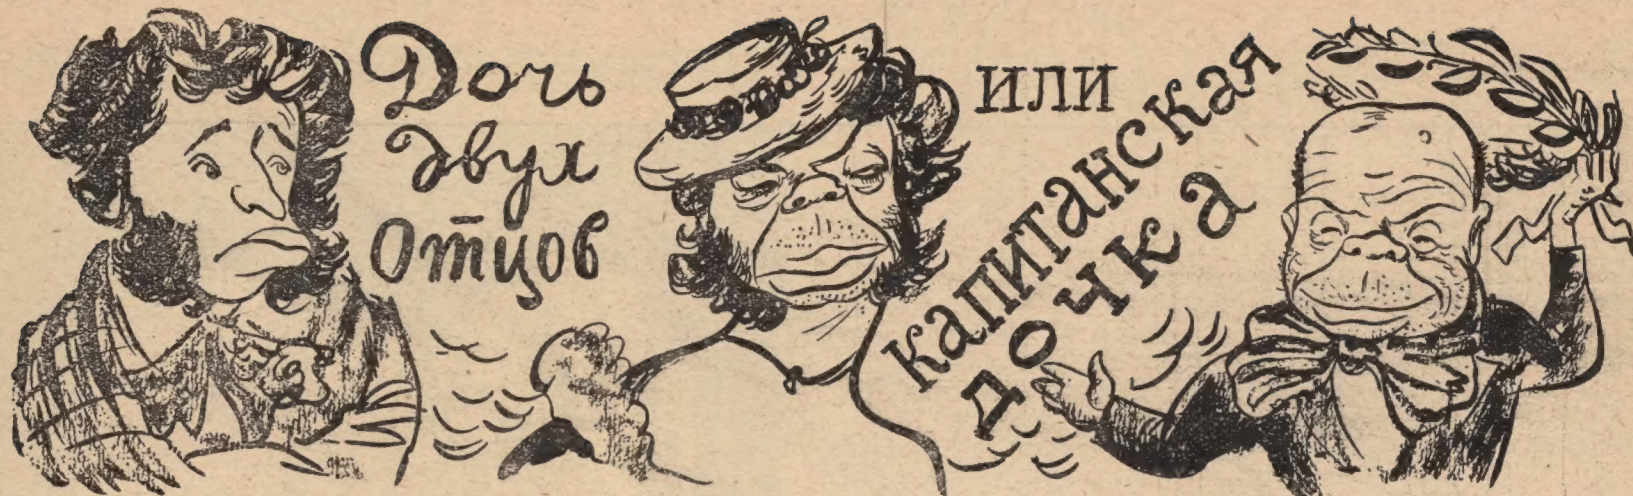 Дочь
двух
Отцов
или
капитанская
дочка